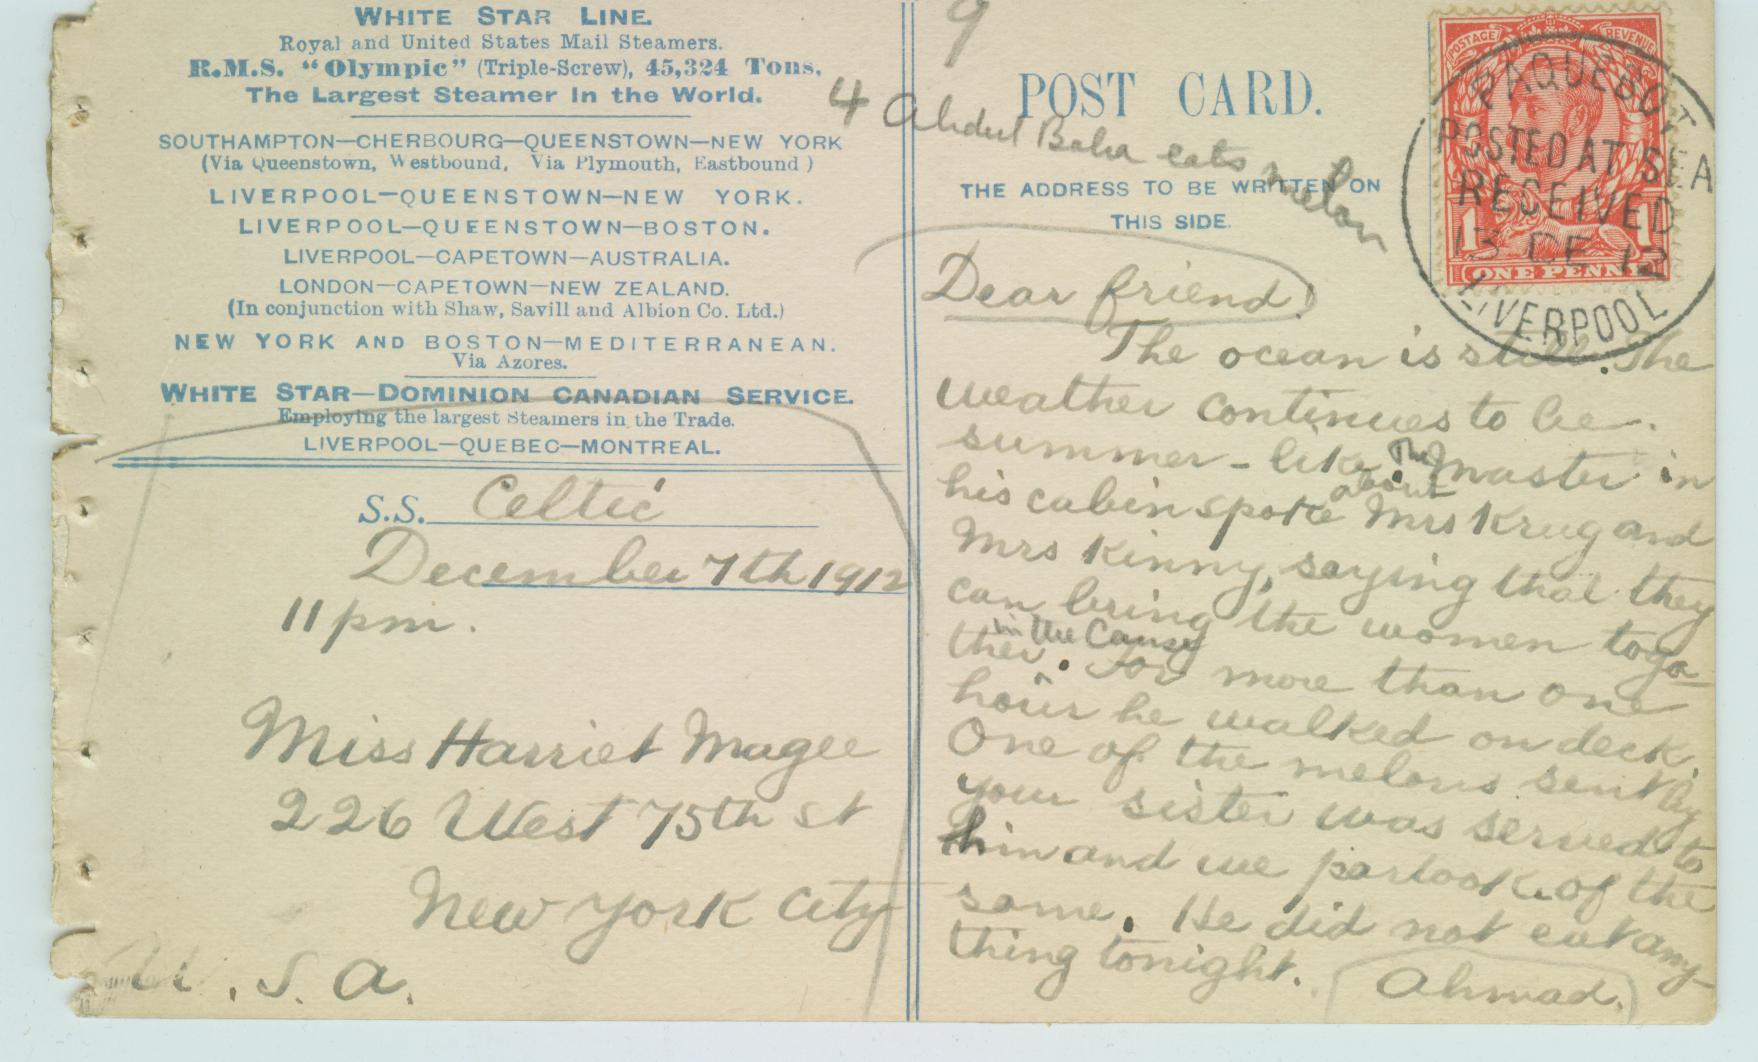 WHITE STAR LINE.
Royal and United States Mail Steamers.
R.M.S. "Olympic" (Triple-Screw), 45,324 Tons.
The Largest Steamer in the World.
SOUTHAMPTON—CHERBOURG—QUEENSTOWN—NEW YORK
(Via Queenstown, Westbound, Via Plymouth, Eastbound )
LIVERPOOL—QUEENSTOWN—NEW YORK.
LIVERPOOL—QUEENSTOWN—BOSTON.
LIVERPOOL—CAPETOWN—AUSTRALIA.
LONDON—CAPETOWN—NEW ZEALAND.
(In conjunction with Shaw, Savill and Albion Co. Ltd.)
NEW YORK AND BOSTON—MEDITERRANEAN.
Via Azores.
WHITE STAR—DOMINION CANADIAN SERVICE.
Employing the largest Steamers in the Trade.
LIVERPOOL—QUEBEC—MONTREAL.
S.S. Celtic
December 7th 1912
11 pm.
Miss Harriet Magee
226 West 75th st
New York City
U. S. A.
9
POST CARD.
4 Abdul Baha eats melon
THE ADDRESS TO BE WRITTEN ON
THIS SIDE.
POSTAGE REVENUE
1 1
ONE PENNY
PAQUEBOT
POSTED AT SEA
RECEIVED
13 DE 12
LIVERPOOL
Dear friend!
The ocean is still. The
weather continues to be
summer-like. The Master in
his cabin spoke about Mrs Krug and
Mrs Kinny, saying that they
can bring the women toga-
ther in the Cause. For more than one
hour he walked on deck.
One of the melons sent by
your sister was served to
him and we partook of the
same. He did not eat any-
thing tonight. Ahmad.